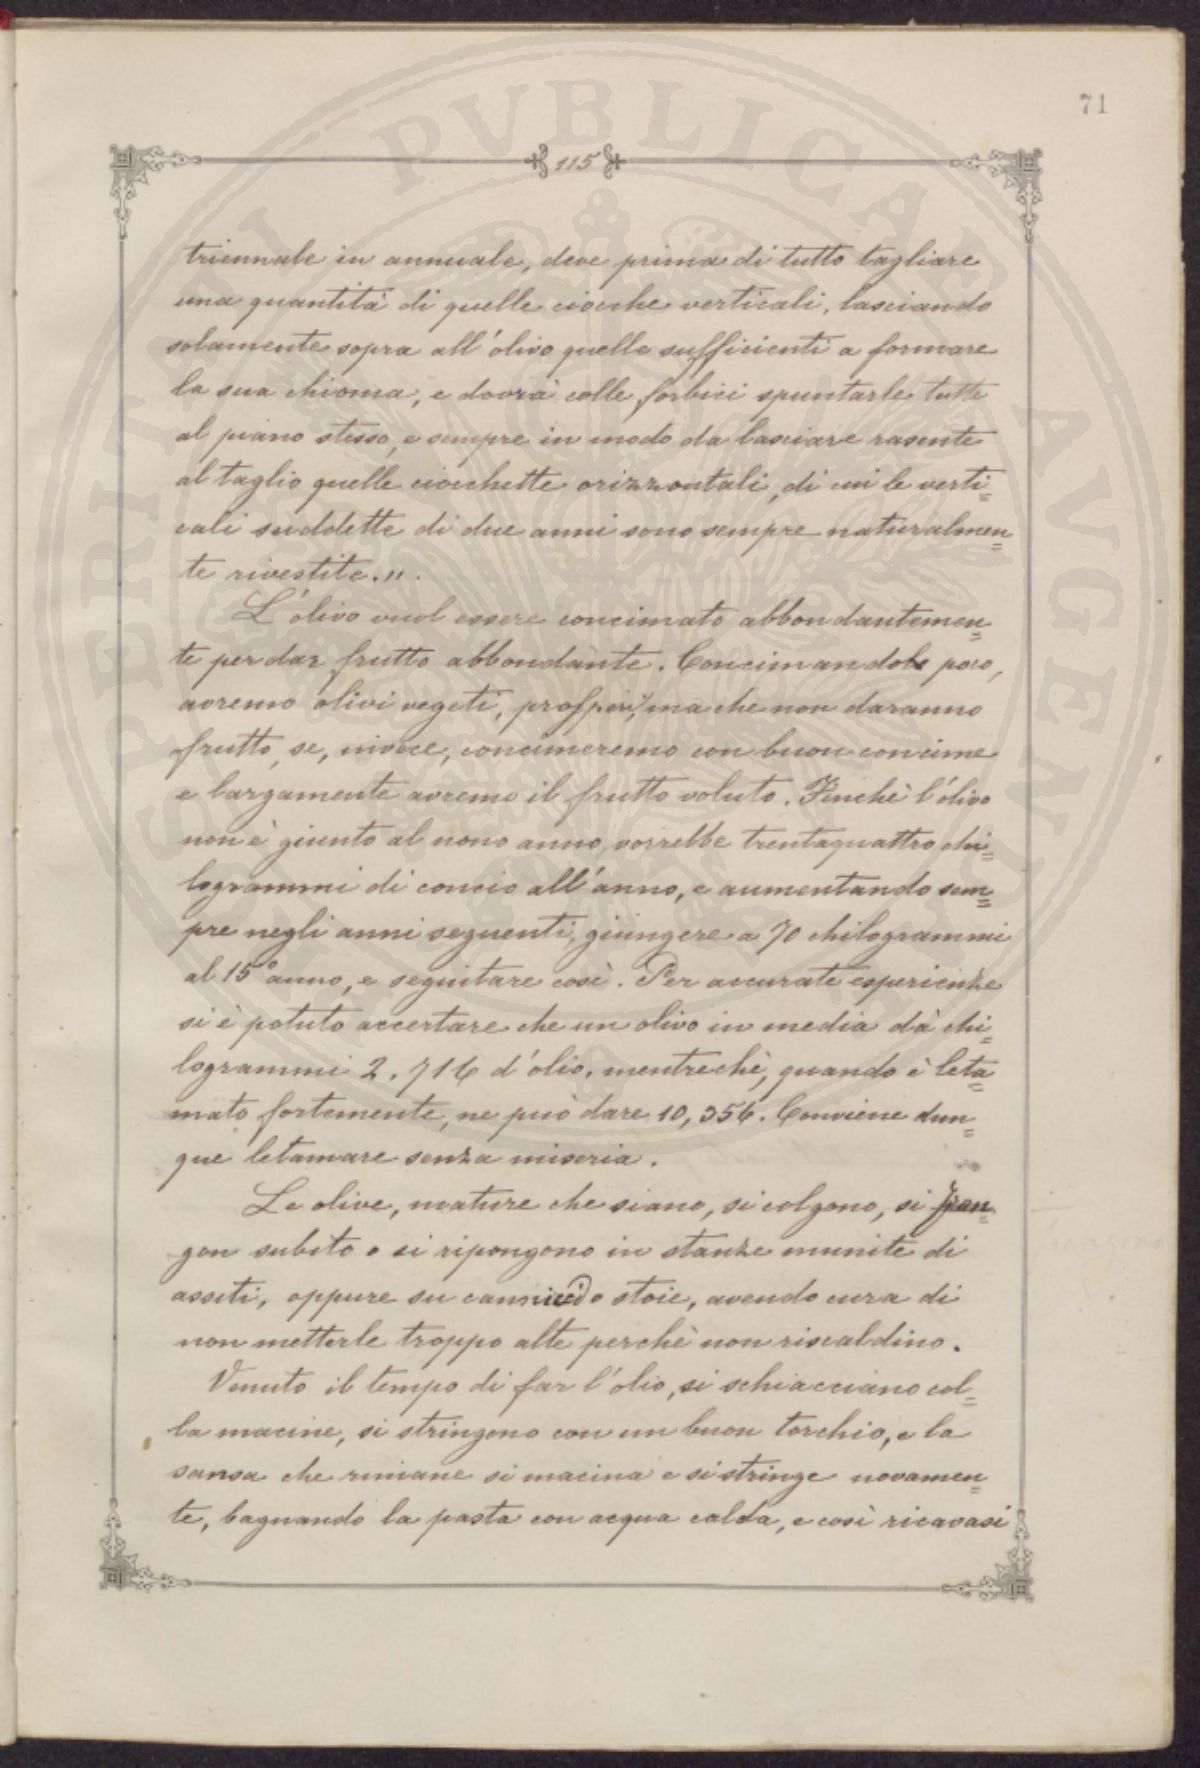 71
115
triennale in annuale, deve prima di tutto tagliare
una quantità di quelle ciocche verticali, lasciando
solamente sopra all'olivo quelle sufficienti a formare
la sua chioma, e dovrà colle forbici spuntarle tutte
al piano stesso, e sempre in modo da lasciare rasente
al taglio quelle ciocchette orizzontali, di cui le verti=
cali suddette di due anni sono sempre naturalmen=
te rivestite.".
L'olivo vuol essere concimato abbondantemen=
te per dar frutto abbondante. Concimandolo poco,
avremo olivi vegeti, prosperi, ma che non daranno
frutto, se, invece, concimeremo con buon concime
e largamente avremo il frutto voluto. Finchè l'olivo
non è giunto al nono anno, vorrebbe trentaquattro chi=
logrammi di concio all'anno, e aumentando sem=
pre negli anni seguenti, giungere a 70 chilogrammi
al 15° anno, e seguitare così. Per accurate esperienze
si è potuto accertare che un olivo in media dà chi=
logrammi 2.716 d'olio, mentrechè, quando è leta=
mato fortemente, ne può dare 10,356. Conviene dun=
que letamare senza miseria.
Le olive, mature che siano, si colgono, si fran=
gon subito o si ripongono in stanze munite di
assiti, oppure su cannicci o stoie, avendo cura di
non metterle troppo alte perchè non riscaldino.
Venuto il tempo di far l'olio, si schiacciano col=
la macine, si stringono con un buon torchio, e la
sansa che rimane si macina e si stringe novamen=
te, bagnando la pasta con acqua calda, e così ricavasi
PUBLICAE